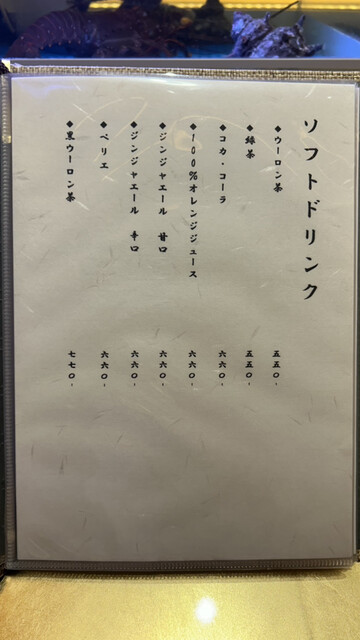 ソフトドリンク
◆ウーロン茶 五五〇-
◆緑茶 五五〇-
◆コカ・コーラ 六六〇-
◆100%オレンジジュース 六六〇-
◆ジンジャエール 甘口 六六〇-
◆ジンジャエール 辛口 六六〇-
◆ペリエ 六六〇-
◆黒ウーロン茶 七七〇-